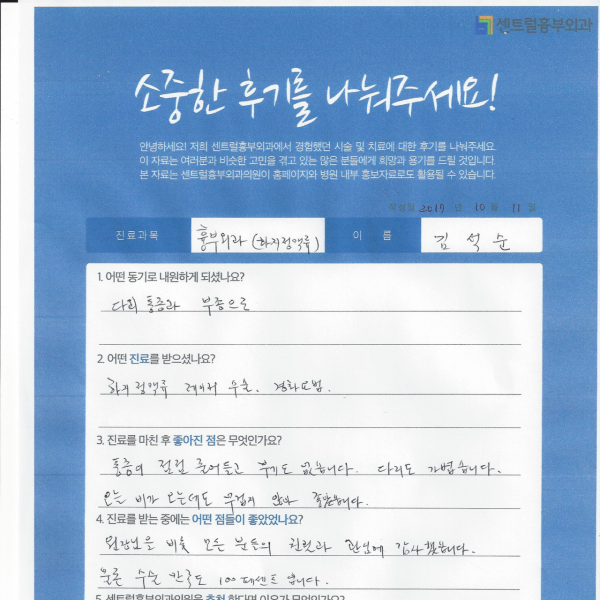 센트럴흉부외과
소중한 후기를 나눠주세요!
안녕하세요! 저희 센트럴흉부외과에서 경험했던 시술 및 치료에 대한 후기를 나눠주세요.
이 자료는 여러분과 비슷한 고민을 겪고 있는 많은 분들에게 희망과 용기를 드릴 것입니다.
본 자료는 센트럴흉부외과의원이 홈페이지와 병원 내부 홍보자료로도 활용될 수 있습니다.
작성일 2017 년 10 월 11 일
진료과목 흉부외과 (하지정맥류) 이 름 김석순
1. 어떤 동기로 내원하게 되셨나요?
다리 통증과 부종으로
2. 어떤 진료를 받으셨나요?
하지정맥류 레이저 수술. 경화요법.
3. 진료를 마친 후 좋아진 점은 무엇인가요?
통증이 점점 줄어들고 부기도 없습니다. 다리도 가볍습니다.
오늘 비가 오는데도 무겁지 않아 좋았습니다.
4. 진료를 받는 중에는 어떤 점들이 좋았었나요?
원장님을 비롯 모든 분들의 친절과 관심에 감사했습니다.
물론 수술 만족도 100퍼센트 입니다.
5. 센트럴흉부외과의원을 추천 한다면 이유가 무엇인가요?